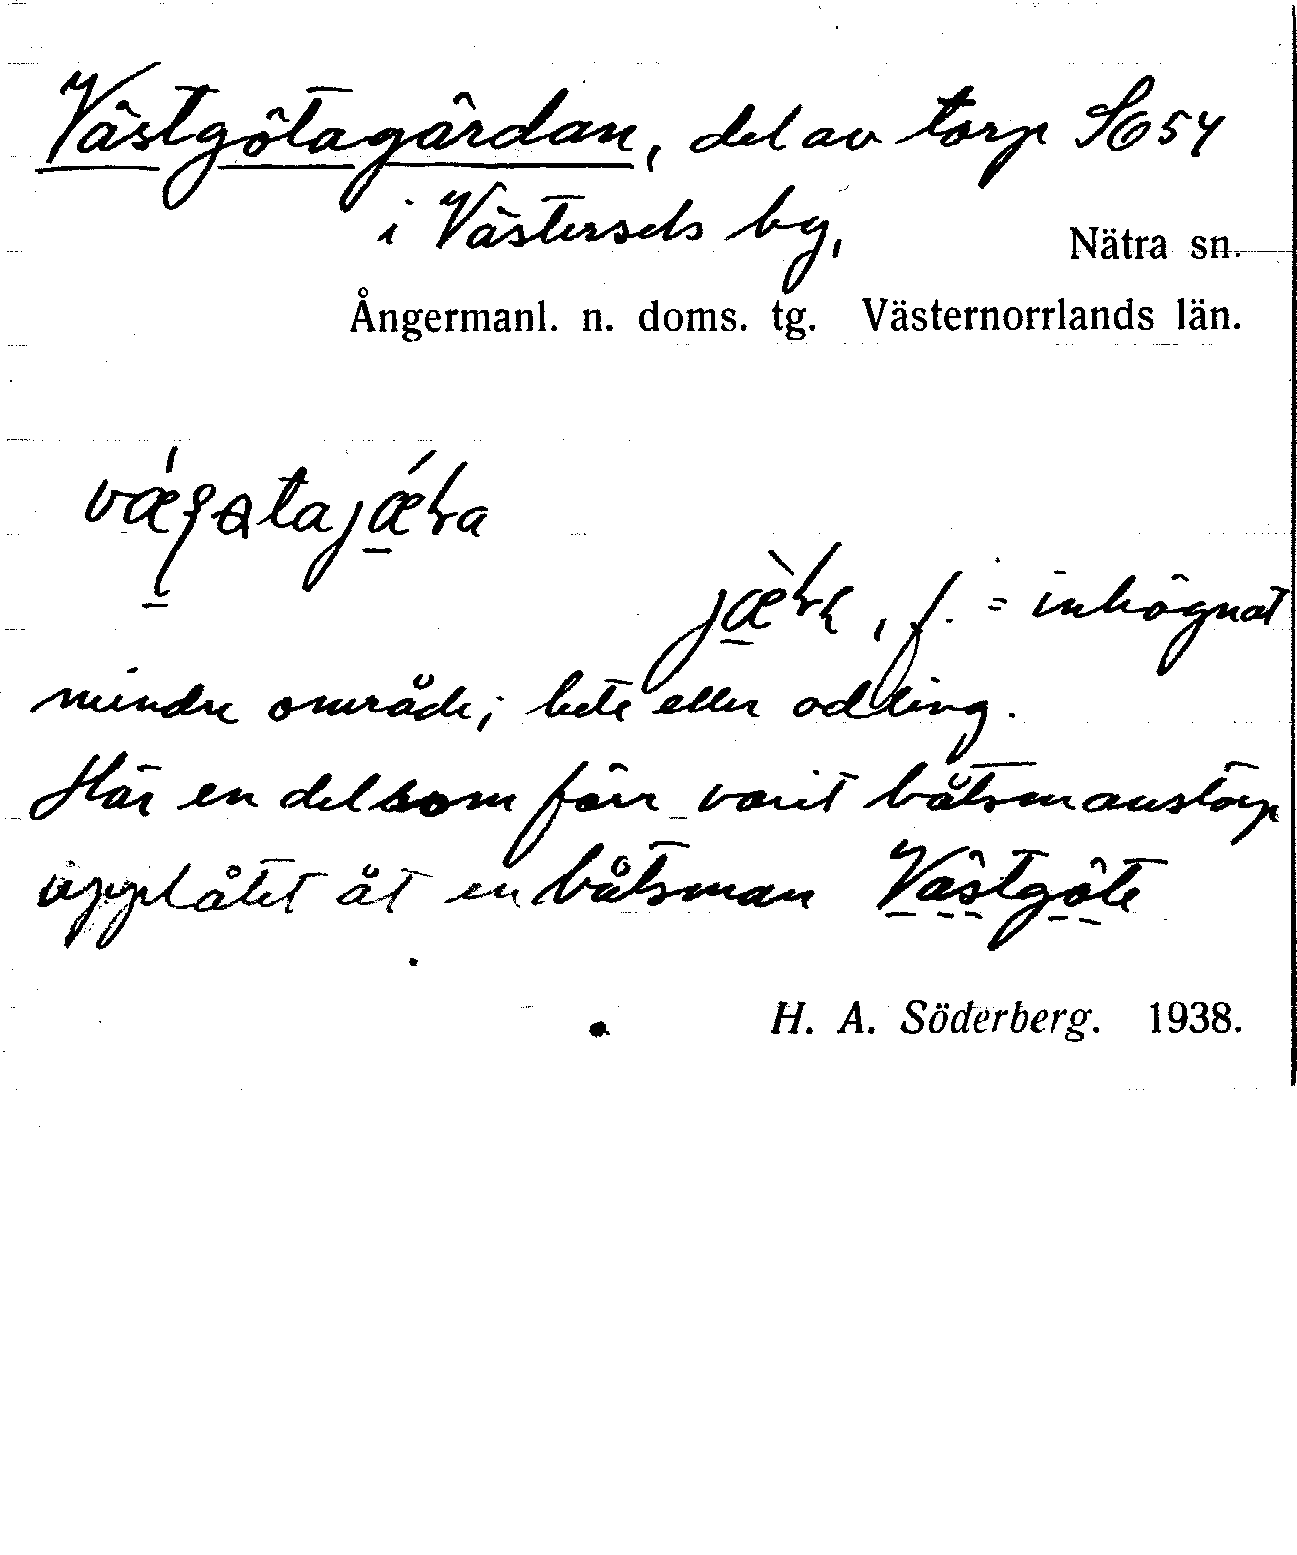 Västgötagärdan, del av torp 54
i Västersels by,
Nätra sn.
Ångermanl. n. doms. tg. Västernorrlands län.
f. = inhägnat
mindre område; bete eller odling.
Här en del som förr varit båtsmanstorp
upplåtet åt en båtsman Västgöte
H. A. Söderberg. 1938.